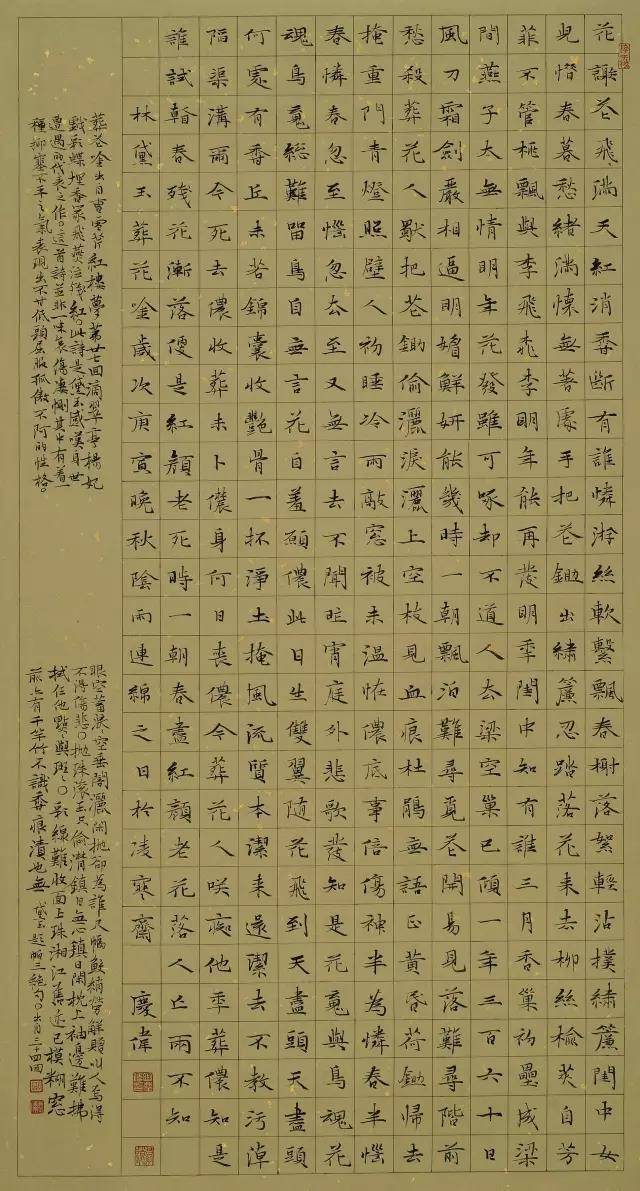 花謝花飛滿天紅消香斷有誰憐游絲軟繫飄春榭落絮輕沾撲繡簾閨中女
兒惜春暮愁緒滿懷無著處手把花鋤出繡簾忍踏落花來去柳絲榆莢自芳
菲不管桃飄與李飛桃李明年能再發明年閨中知有誰三月香巢壘成梁
間燕子太無情明年花發雖可啄却不道人去梁空巢已傾一年三百六十日
風刀霜劍嚴相逼明媚鮮妍能幾時一朝飄泊難尋覓花開易見落難尋階前
愁殺葬花人獨把花鋤偷灑淚灑上空枝見血痕杜鵑無語正黃昏荷鋤歸去
掩重門青燈照壁人初睡冷雨敲窗被未溫怪儂底事倍傷神半為憐春半惱
春憐春忽至惱忽去至又無言去不聞昨宵庭外悲歌發知是花魂與鳥魂花
魂鳥魂總難留鳥自無言花自羞願儂此日生雙翼隨花飛到天盡頭天盡頭
何處有香丘未若錦囊收艷骨一抔淨土掩風流質本潔來還潔去不教污淖
陷渠溝爾今死去儂收葬未卜儂身何日喪儂今葬花人笑痴他年葬儂知是
誰試看春殘花漸落便是紅顏老死時一朝春盡紅顏老花落人亡兩不知
林黛玉葬花吟歲次庚寅晚秋陰雨連綿之日於凌寒齋 慶偉
葬花吟出自曹雪芹紅樓夢第廿七回滴翠亭楊妃
戲彩蝶埋香冢飛燕泣殘紅。此詩是黛玉感嘆身世
遭遇的代表之作。這首詩並非一味哀傷凄惻其中有着一
種抑塞不平之氣表現出不甘低頭屈服孤傲不阿的性格。
眼空蓄淚淚空垂閑灑閑拋卻為誰尺幅鮫綃勞解贈叫人焉得
不傷悲○拋珠滾玉只偷潸鎮日無心鎮日閑枕上袖邊難拂
拭任他點點與斑斑○彩線難收面上珠湘江舊迹已模糊窗
前亦有千竿竹不識香痕漬也無 黛玉題帕三絕句。出自三十四回